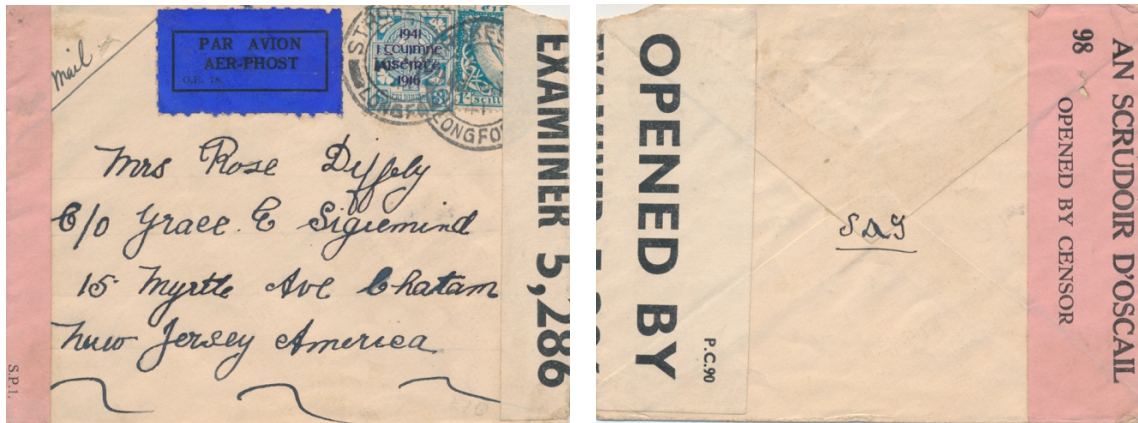 mail
PAR AVION
AER-PHOST
O.E. 18.
1941
1916
LONGFO
EXAMINER 5,286
Mrs Rose Diffely
C/o Grace. E Sigiemind
15 Myrtle Ave Chatam
New Jersey America
S.P.1.
OPENED BY
P.C.90
S A G
AN SCRUDOIR D'OSCAIL
98 OPENED BY CENSOR